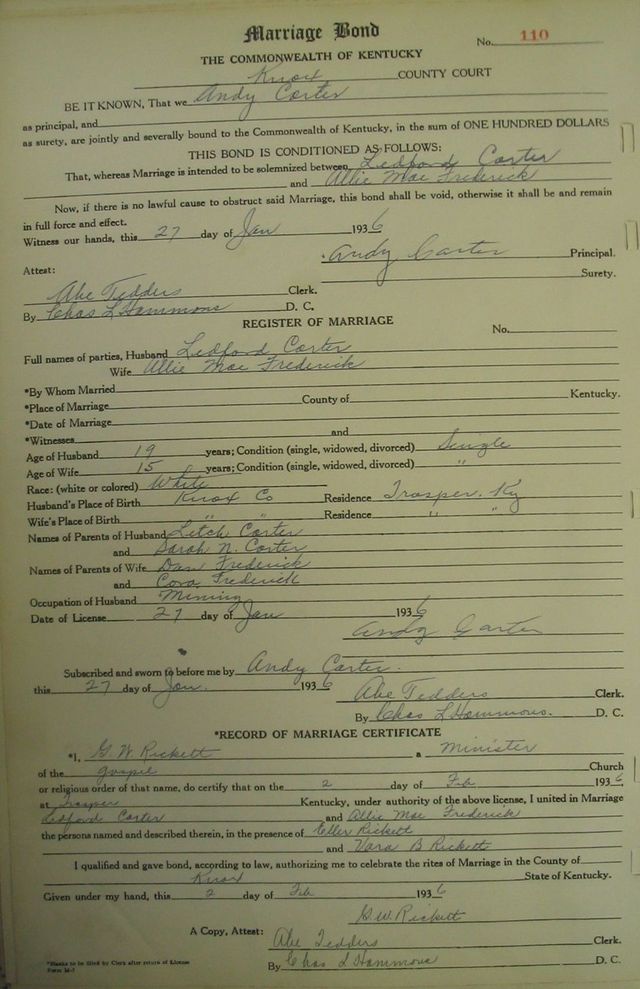 Marriage Bond
No. 110
THE COMMONWEALTH OF KENTUCKY
Knox COUNTY COURT
BE IT KNOWN, That we Andy Carter
as principal, and
as surety, are jointly and severally bound to the Commonwealth of Kentucky, in the sum of ONE HUNDRED DOLLARS
THIS BOND IS CONDITIONED AS FOLLOWS:
That, whereas Marriage is intended to be solemnized between Ledford Carter
and Allie Mae Frederick
Now, if there is no lawful cause to obstruct said Marriage, this bond shall be void, otherwise it shall be and remain
in full force and effect.
Witness our hands, this 27 day of Jan 1936
Andy Carter Principal.
Attest: Surety.
Abe Tedders Clerk.
By Chas L Hammons D. C.
REGISTER OF MARRIAGE
No.
Full names of parties, Husband Ledford Carter
Wife Allie Mae Frederick
*By Whom Married
*Place of Marriage County of Kentucky.
*Date of Marriage
*Witnesses and
Age of Husband 19 years; Condition (single, widowed, divorced) Single
Age of Wife 15 years; Condition (single, widowed, divorced) "
Race: (white or colored) White
Husband's Place of Birth Knox Co Residence Trosper. Ky
Wife's Place of Birth " " Residence " "
Names of Parents of Husband Letch Carter
and Sarah N. Carter
Names of Parents of Wife Dan Frederick
and Cora Frederick
Occupation of Husband Mining
Date of License 27 day of Jan 1936
Andy Carter
Subscribed and sworn to before me by Andy Carter.
this 27 day of Jan. 1936 Abe Tedders Clerk.
By Chas L Hammons. D. C.
*RECORD OF MARRIAGE CERTIFICATE
*I, G. W. Rickett a Minister
of the gospel Church
or religious order of that name, do certify that on the 2 day of Feb 1936
at Trosper Kentucky, under authority of the above license, I united in Marriage
Ledford Carter and Allie Mae Frederick
the persons named and described therein, in the presence of Eller Rickett
and Vara B Rickett
I qualified and gave bond, according to law, authorizing me to celebrate the rites of Marriage in the County of
Knox State of Kentucky.
Given under my hand, this 2 day of Feb 1936
G. W. Rickett
A Copy, Attest: Abe Tedders Clerk.
By Chas L Hammons D. C.
*Blanks to be filled by Clerk after return of License